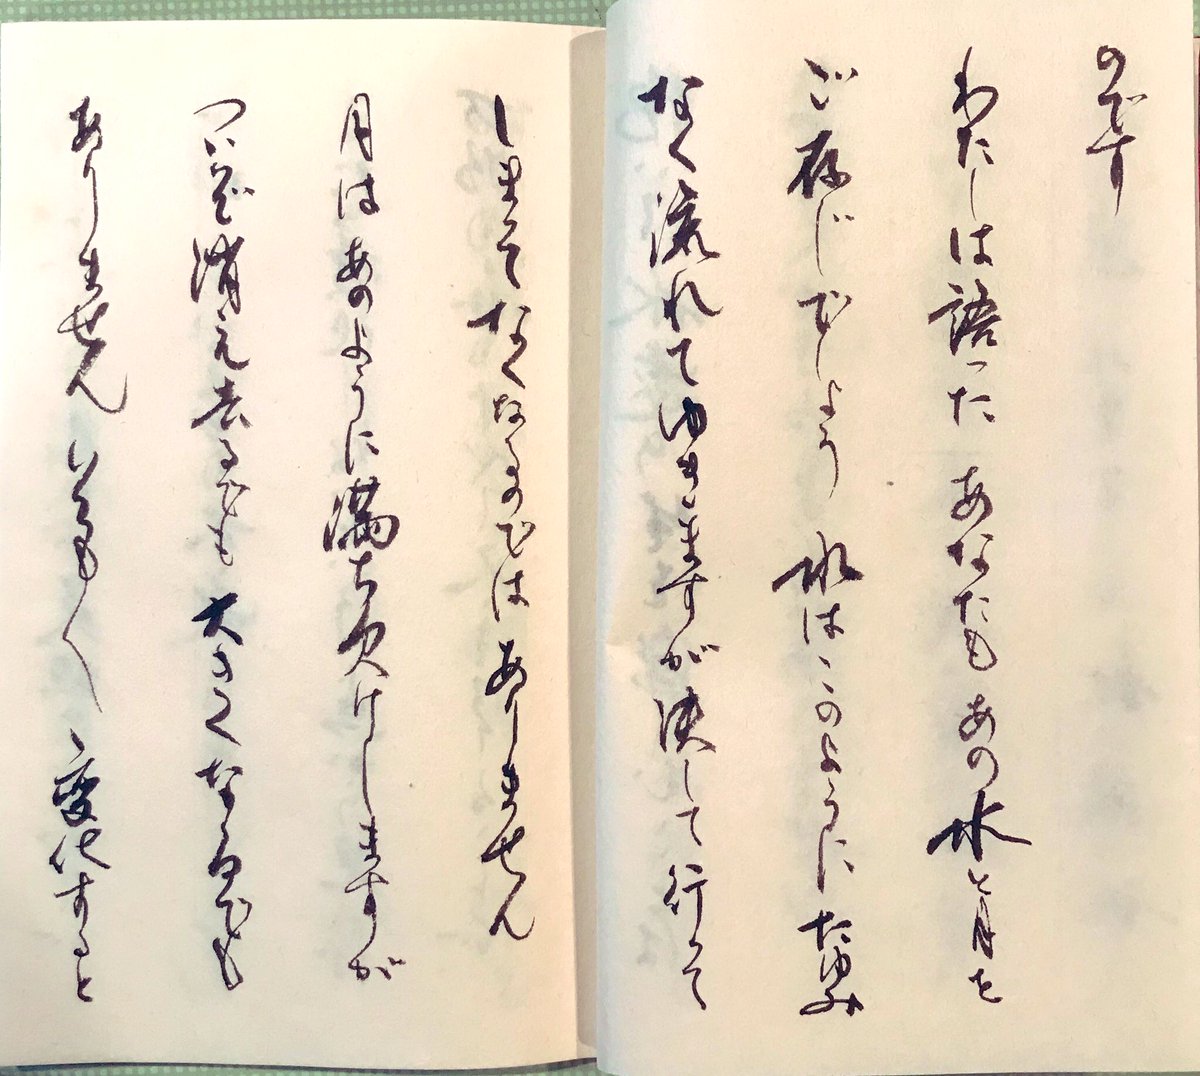 のです
わたしは語った あなたも あの水と月を
ご存じでしょう 水はこのように たゆみ
なく流れてゆきますが決して行って
しまってなくなるのでは ありません
月は あのように満ち欠けしますが
ついぞ消え去るでも 大きくなるでも
ありません いろいろ 変化すると